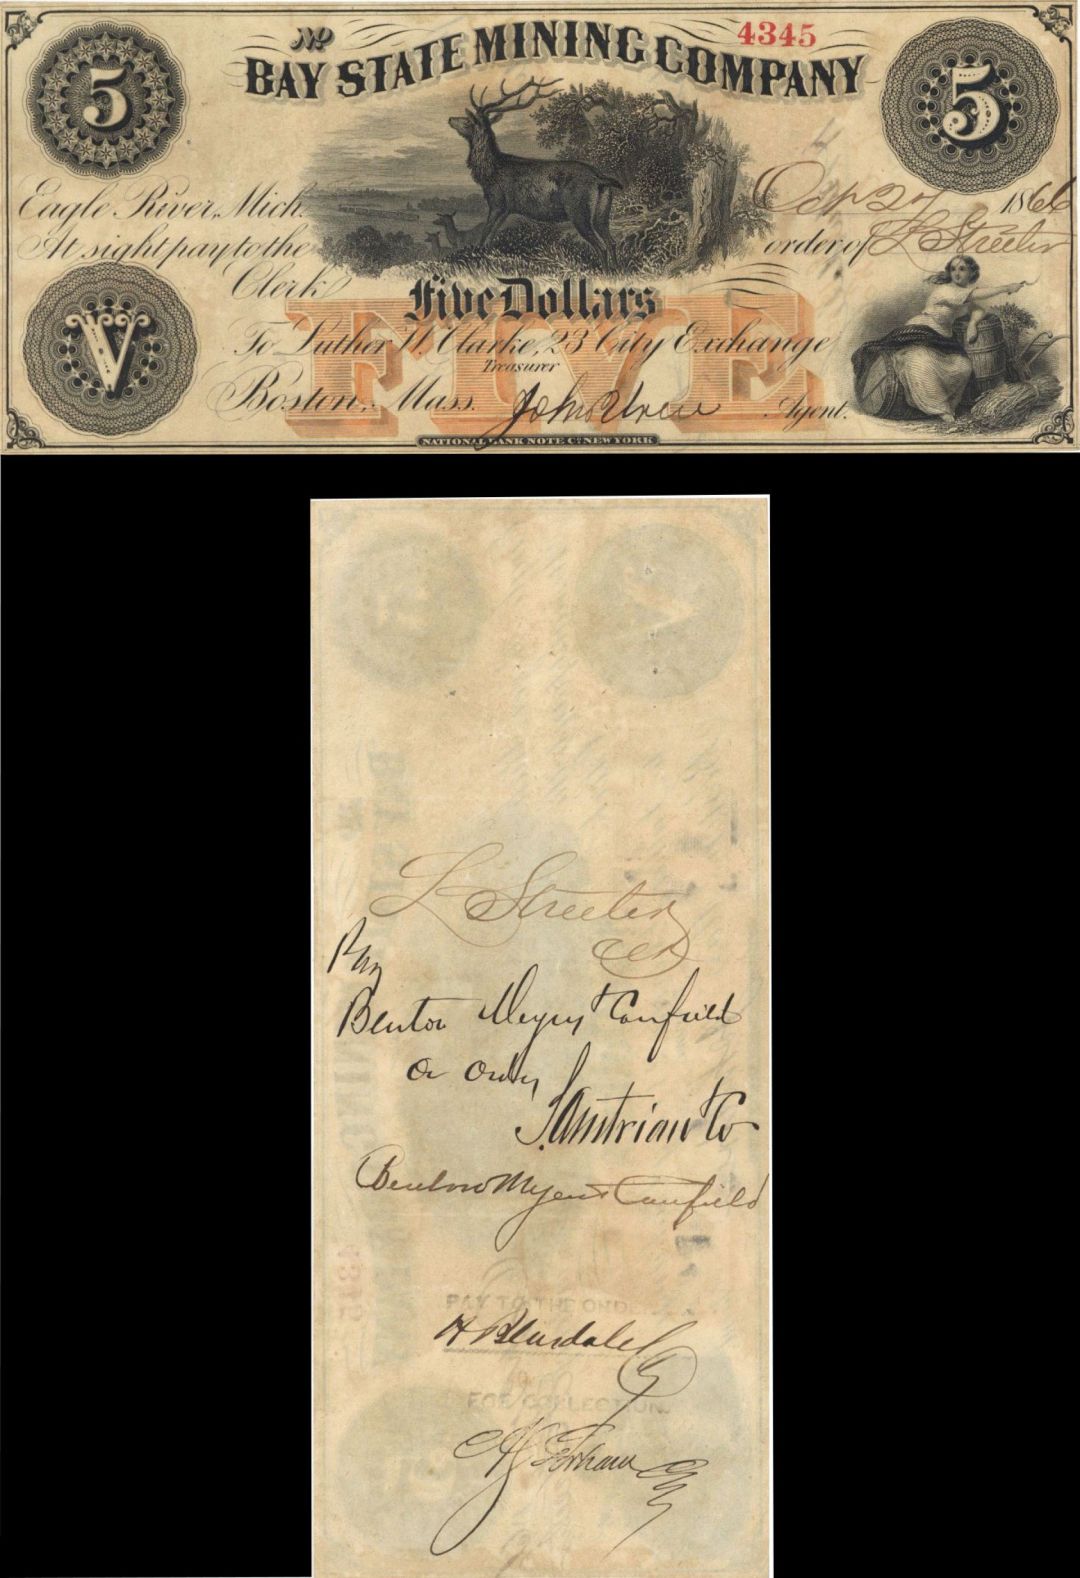 5
No 4345
BAY STATE MINING COMPANY
5
Eagle River, Mich. Oct 27 1866
At sight pay to the order of L Streeter
Clerk
Five Dollars
FIVE
V
To Luther W. Clarke, 23 City Exchange
Treasurer
Boston, Mass. John Uren Agent.
NATIONAL BANK NOTE Co. NEW YORK
L Streeter
Clk
Pay
Benton Meyers & Canfield
or order
S. Austrian & Co
Benton Myers & Canfield
PAY TO THE ORDER
H Blinsdale
FOR COLLECTION